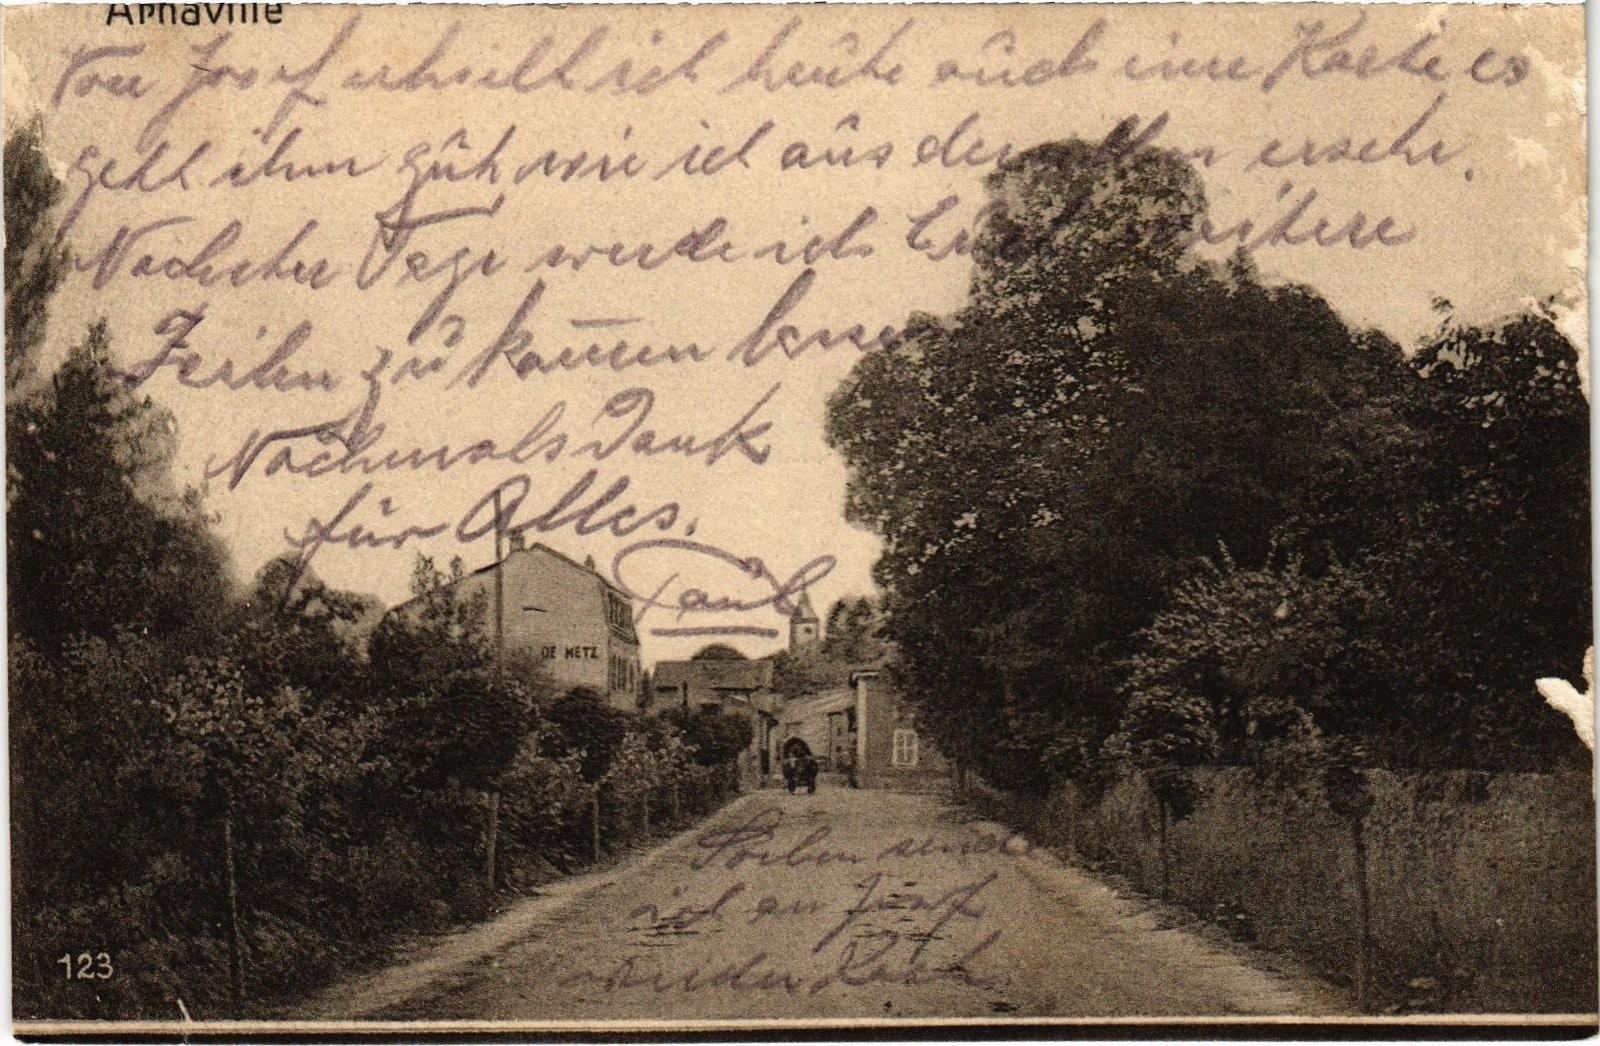 Arnaville
Von Josef erhielt ich heute auch eine Karte es
geht ihm gut, wie ich aus der ersehe.
Nächster Tage werde ich Euch weitere
Zeilen zu kommen lassen
Nochmals Dank
für Alles.
Paul
DE METZ
Soeben sende
ich an Josef
wieder
123